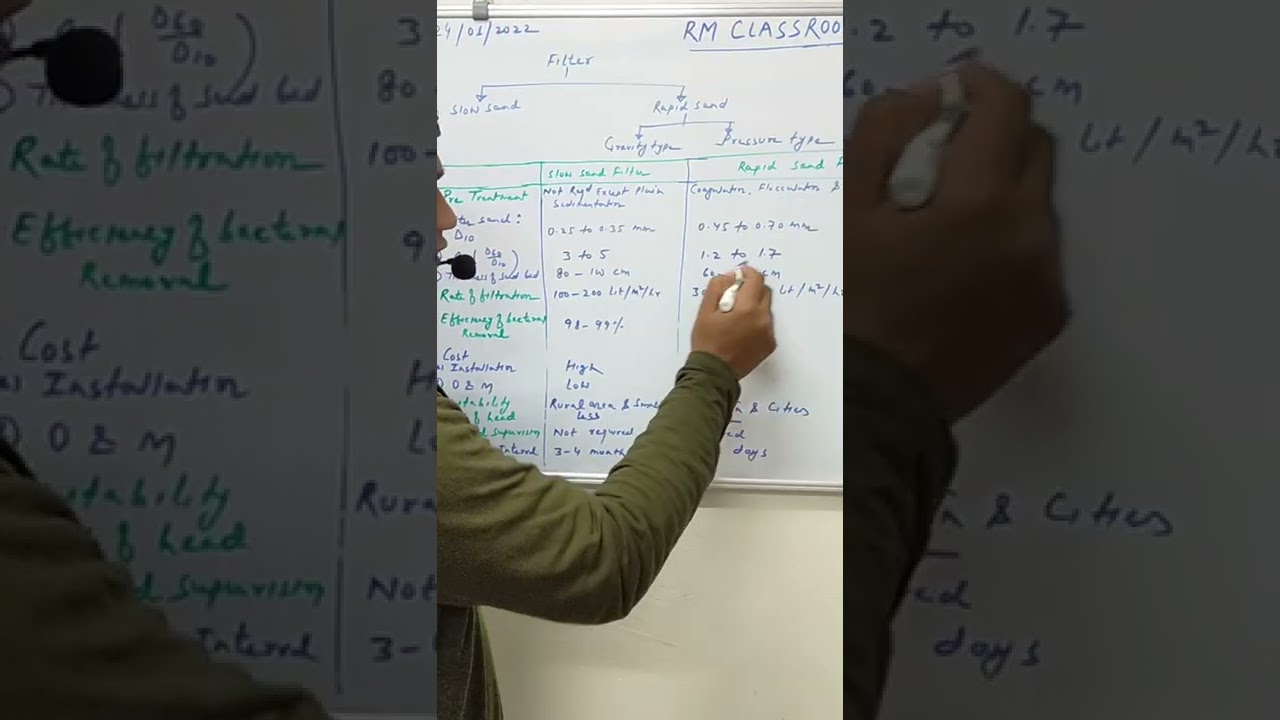 24/01/2022
RM CLASSROO
Filter
Slow sand
Rapid sand
Gravity type
Pressure type
Slow Sand Filter
Rapid Sand F
Pre Treatment
Not Reqd Except Plain Sedimentation
Coagulation, Flocculation &
sand:
D10
0.25 to 0.35 mm
0.45 to 0.70 mm
D60/D10
3 to 5
1.2 to 1.7
Thickness of Sand bed
80 – 100 cm
60 cm
Rate of filtration
100 – 200 Lit/m²/hr
30 Lit/m²/hr
Efficiency of bacterial Removal
98 – 99%
Cost
Installation
High
O & M
Low
Rural area & Small
& Cities
of head
less
Supervision
Not required
Interval
3 – 4 month
days